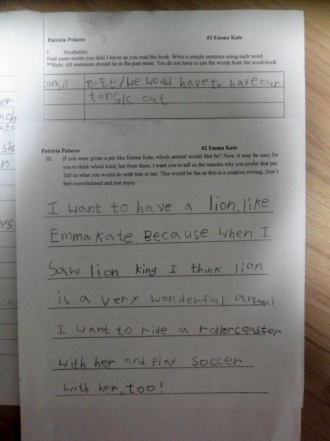 Patricia Polacco #2 Emma Kate
I Vocabulary
Find some words you didn't know as you read the book. Write a simple sentence using each word.
**Rule: All sentences should be in the past tense. You do not have to use the words from the word-book.
we would have to have our
tongic out
Patricia Polacco #2 Emma Kate
III. If you were given a pet like Emma Kate, which animal would that be? Now, it may be easy for
you to think which kind, but from there, I want you to tell us the reasons why you prefer that pet.
Tell us what you would do with him or her. This would be fun as this is a creative writing. Don't
feel overwhelmed and just enjoy.
I want to have a lion, like
Emma kate Because when I
Saw lion king I think lion
is a very wonderful
I want to ride a rollerceaster
with her and Play Soccer
with her, too!